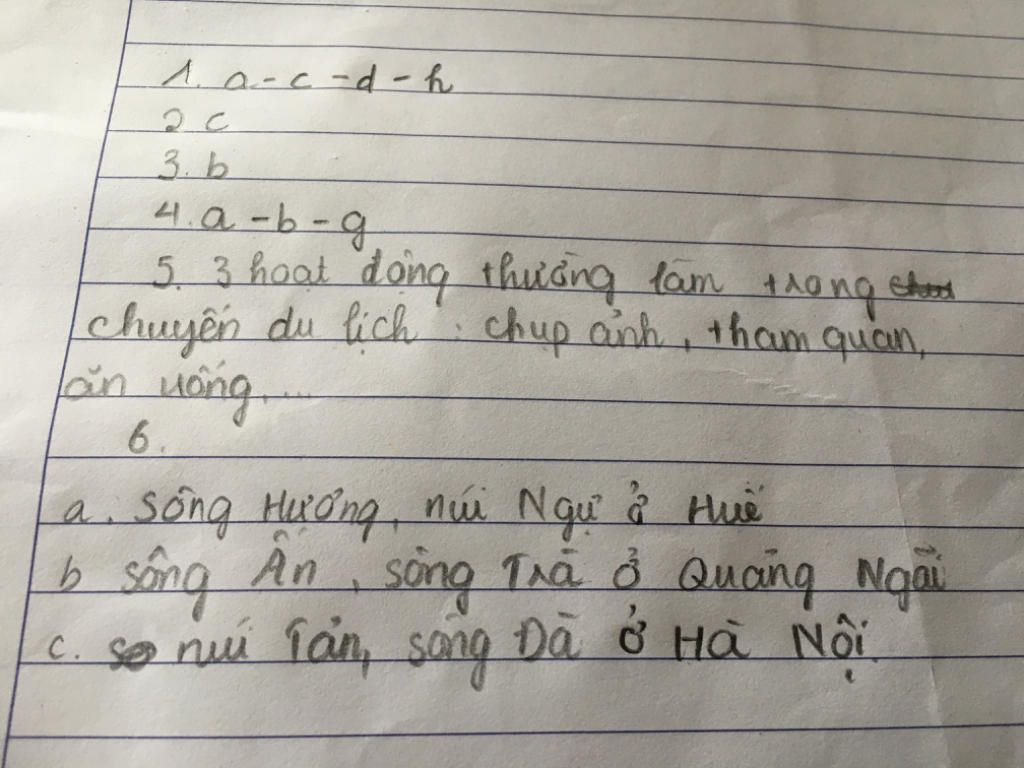 1. a - c - d - h
2 c
3. b
4. a - b - g
5. 3 hoạt động thường làm trong
chuyến du lịch : chụp ảnh, tham quan,
ăn uống,....
6.
a. Sông Hương, núi Ngự ở Huế
b sông Ấn, sông Trà ở Quảng Ngãi
c. núi Tản, sông Đà ở Hà Nội.